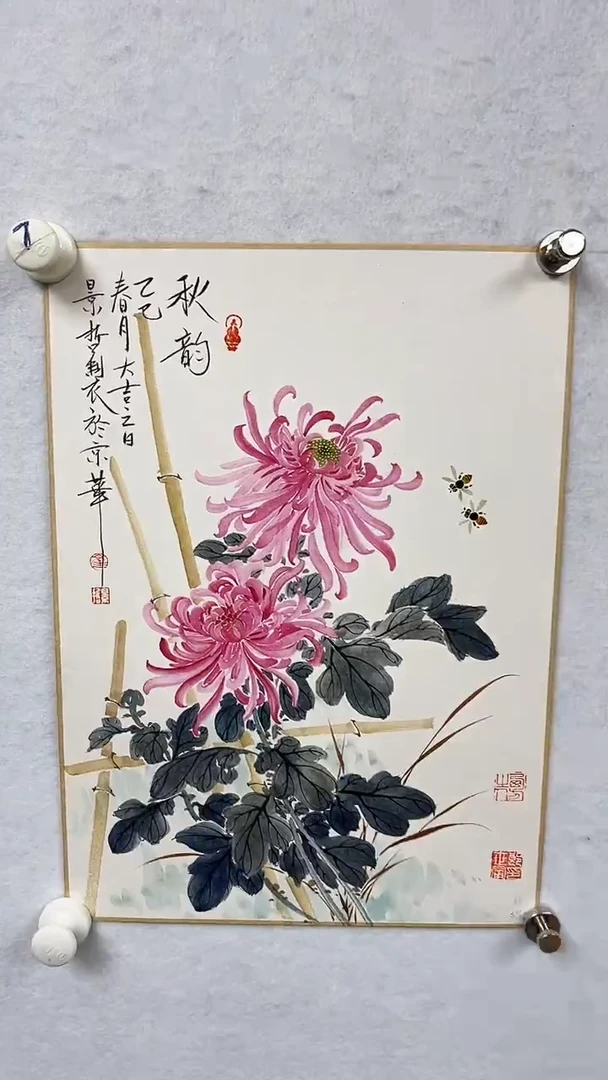 秋韵
乙巳
春月大吉之日
景哲制衣於京華
7